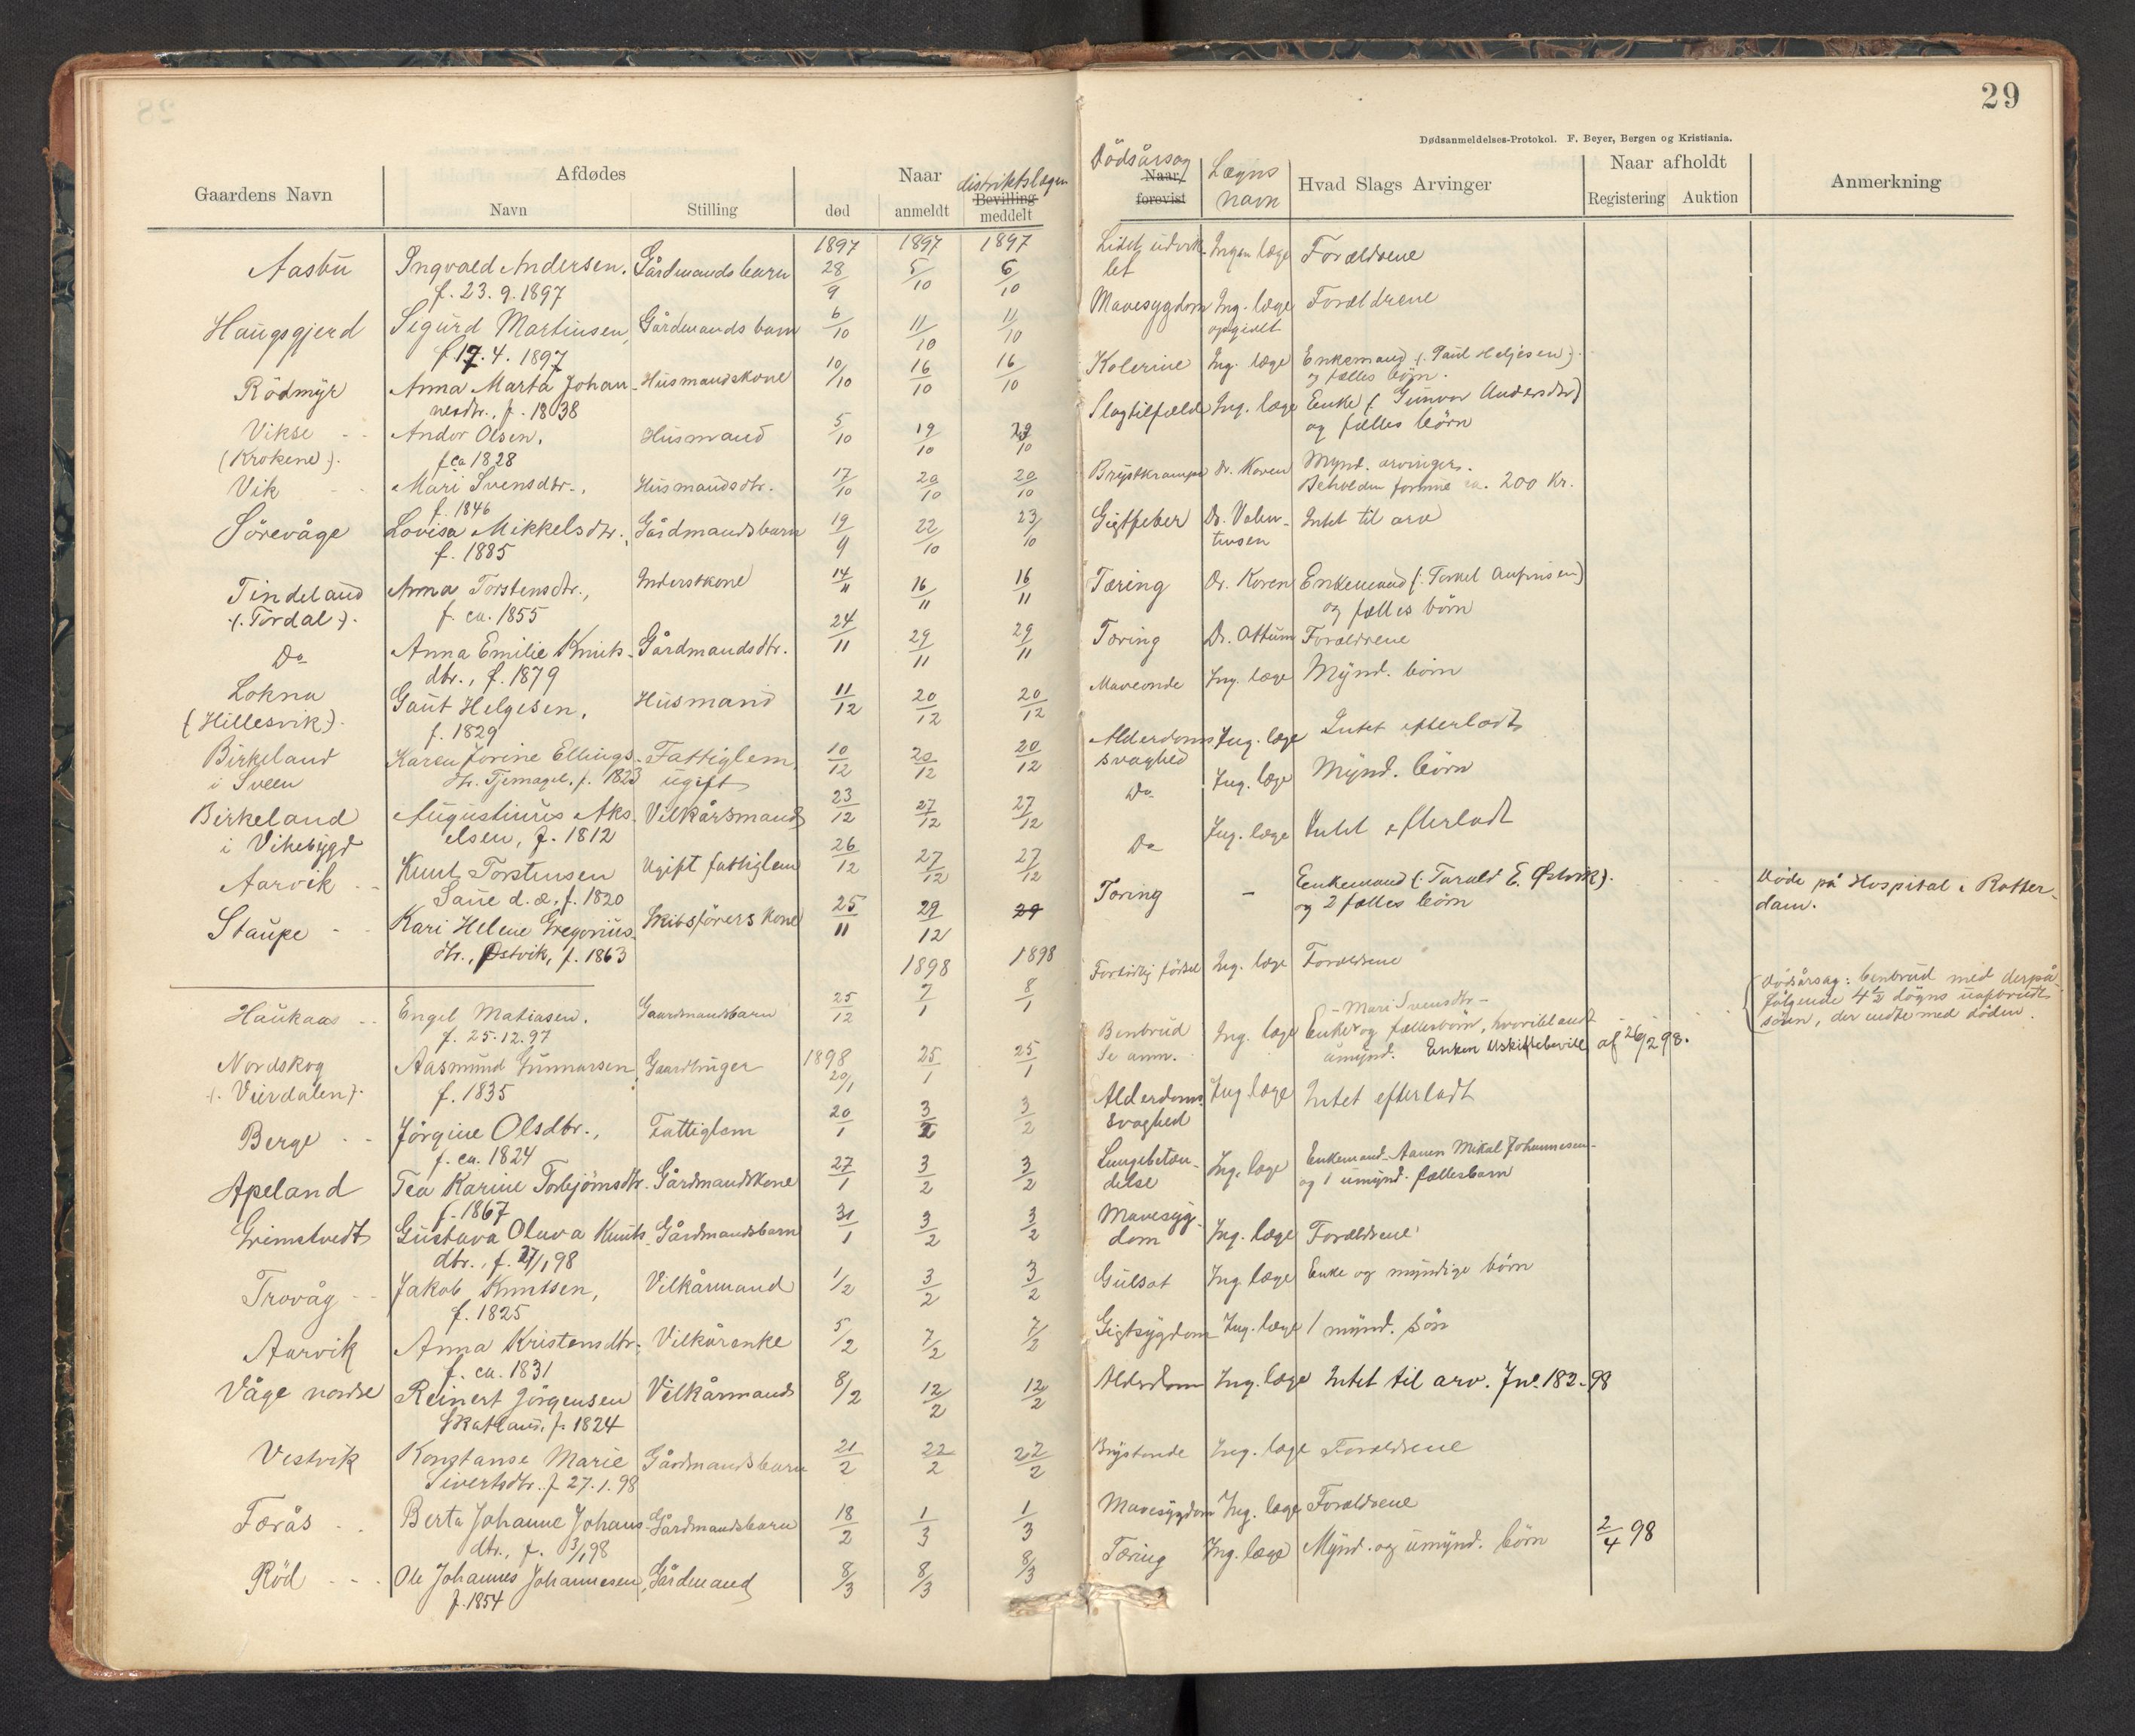 29
Dødsanmeldelses-Protokol. F. Beyer, Bergen og Kristiania.
Gaardens Navn
Afdødes
Navn
Stilling
Naar
død
anmeldt
distriktslægen
Bevilling
meddelt
Dödsårsag
Naar
forevist
Lægens
navn
Hvad Slags Arvinger
Naar afholdt
Registering
Auktion
Anmerkning
1897 1897 1897
Aasbu Ingvald Andersen. Gårdmandsbarn 28/9 5/10 6/10 Lidet udvik- Ingen læge Forældrene
f. 23.9.1897 let
Haugsgjerd Sigurd Martinsen, Gårdmandsbarn 6/10 11/10 11/10 Mavesygdom Ing. læge Forældrene
f. 17.4.1897 opgivet
Rödmyr Anna Marta Johan- Husmandskone 10/10 16/10 16/10 Kolerine Ing. læge Enkemand (: Paul Heljesen :)
nesdtr., f. 1838 og fælles börn.
Vikse - - Andor Olsen, Husmand 5/10 19/10 23/10 Slagtilfælde Ing. læge Enke (: Gunvor Andersdtr)
(Krokene). f ca 1828 og fælles börn
Vik - - Mari Svensdtr., Husmandsdtr. 17/10 20/10 20/10 Brystkrampe Dr. Koren Mynd. arvinger.
f. 1846 Beholden formue ca. 200 Kr.
Sörevåge Lovisa Mikkelsdtr., Gårdmandsbarn 19/9 22/10 23/10 Gigtfeber Dr. Valen- Intet til arv
f. 1885 tinsen
Tindeland Anna Torstensdtr., Inderstkone 14/11 16/11 16/11 Tæring Dr. Koren Enkemand (: Torkel Aufinsen)
(: Tordal :). f. ca. 1855 og fælles börn
Do Anna Emilie Knuts- Gårdmandsdtr. 24/11 29/11 29/11 Tæring Dr. Attum Forældrene
dtr., f. 1879
Lokna Gaut Helgesen, Husmand 11/12 20/12 20/12 Maveonde Ing. læge Mynd. börn
(Hillesvik). f. 1829
Birkeland Karen Jorine Ellings- Fattiglem, 10/12 20/12 20/12 Alderdoms- Ing. læge Intet efterladt
i Sveen dtr. Tjernagel, f. 1823 ugift svaghed
Birkeland Augustinus Aks- Vilkårsmand 23/12 27/12 27/12 Do Ing. læge Mynd. börn
i Vikebygd elsen, f. 1812
Aarvik - - Knut Torstensen Ugift fattiglem 26/12 27/12 27/12 Do Ing. læge Intet efterladt
Saue d. æ, f. 1820
Staupe - - Kari Helene Gregorius- Skibsförers kone 25/11 29/12 29 Tæring - Enkemand (: Tarald E. Østvik). Döde på Hospital i Rotter-
dtr., Østvik, f. 1863 og 2 fælles börn dam.
1898 1898
Haukaas - - Engel Matiasen. Gaardmandsbarn 25/12 7/1 8/1 Fortidlig födsel Ing. læge Forældrene
f. 25.12.97
Nordskog Aasmund Gunnarsen, Gaardbruger 1898 20/1 25/1 25/1 Benbrud Ing. læge - Mari Svensdtr - Enke og fællesbörn, hvoriblandt Dödsårsag: benbrud med derpå-
(: Vierdalen). f. 1835 Se anm. umynd. Enken Uskiftebevill. af 26/2 98. følgende 4 1/2 dögns uafbrudt
sövn, der endte med döden.
Berge - - Jörgine Olsdtr., Fattiglem 20/1 3/2 3/2 Alderdoms- Ing. læge Intet efterladt
f. ca. 1824 svaghed
Apeland Tea Karine Torbjörnsdtr. Gårdmandskone 27/1 3/2 3/2 Lungebetæn- Ing. læge Enkemand - Aanen Mikal Johannesen -
f. 1867 delse og 1 umynd. fællesbarn
Grimstvedt Gustava Oluva Knuts- Gårdmandsbarn 31/1 3/2 3/2 Mavesyg- Ing. læge Forældrene
dtr., f. 27/1 98 dom
Trovåg - - Jakob Knutsen, Vilkårmand 1/2 3/2 3/2 Gulsot Ing. læge Enke og myndige börn
f. 1825
Aarvik Anna Kristensdtr. Vilkårenke 5/2 7/2 7/2 Gigtsygdom Ing. læge 1 mynd. sön
f. ca. 1831
Våge nordre Reinert Jörgensen Vilkårmand 8/2 12/2 12/2 Alderdom Ing. læge Intet til arv. Jnr. 182-98
Skatland, f. 1824
Vestvik Konstanse Marie Gårdmandsbarn 21/2 22/2 22/2 Brystonde Ing. læge Forældrene
Sivertsdtr. f 27.1.98
Færås - - Berta Johanne Johans- Gårdmandsbarn 18/2 1/3 1/3 Mavesygdom Ing. læge Forældrene
dtr., f. 3/1 98
Röd - - Ole Johannes Johannesen, Gårdmand 8/3 8/3 8/3 Tæring Ing. læge Mynd. og umynd. börn 2/4 98
f. 1854